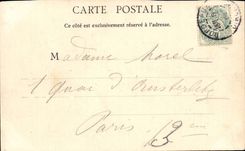 CARTE POSTALE
Ce côté est exclusivement réservé à l'adresse.
M adame Morel
1 Quai d'Austerlitz
Paris